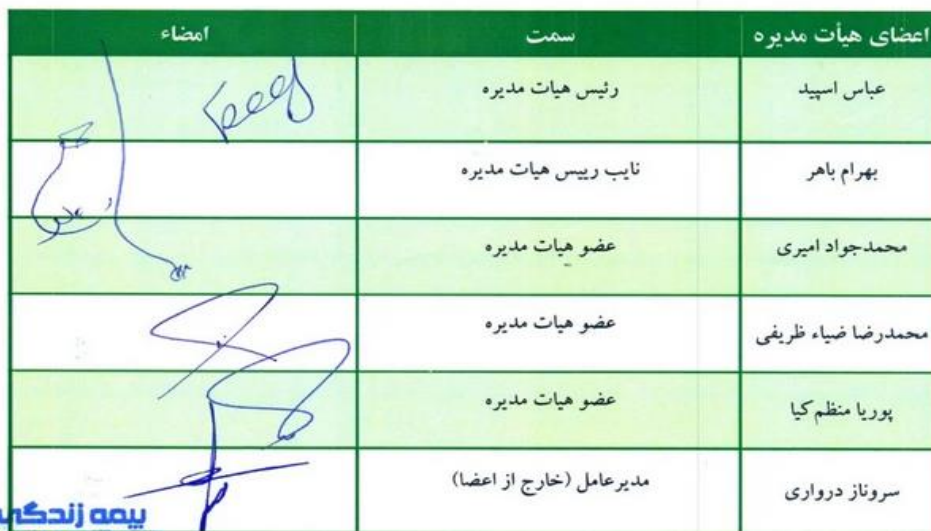 اعضای هیأت مدیره	سمت	امضاء
عباس اسپید	رئیس هیات مدیره
بهرام باهر	نایب رییس هیات مدیره
محمدجواد امیری	عضو هیات مدیره
محمدرضا ضیاء ظریفی	عضو هیات مدیره
پوریا منظم کیا	عضو هیات مدیره
سروناز درواری	مدیرعامل (خارج از اعضا)
بیمه زندگی